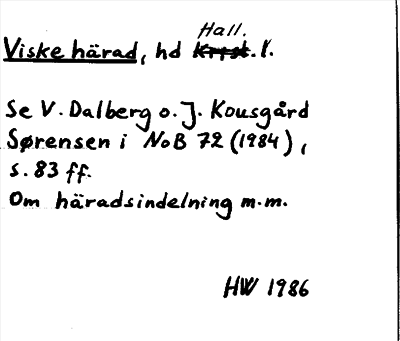 Hall.
Viske härad, hd Krist. l.
Se V. Dalberg o. J. Kousgård
Sørensen i NoB 72 (1984),
s. 83 ff.
Om häradsindelning m.m.
HW 1986